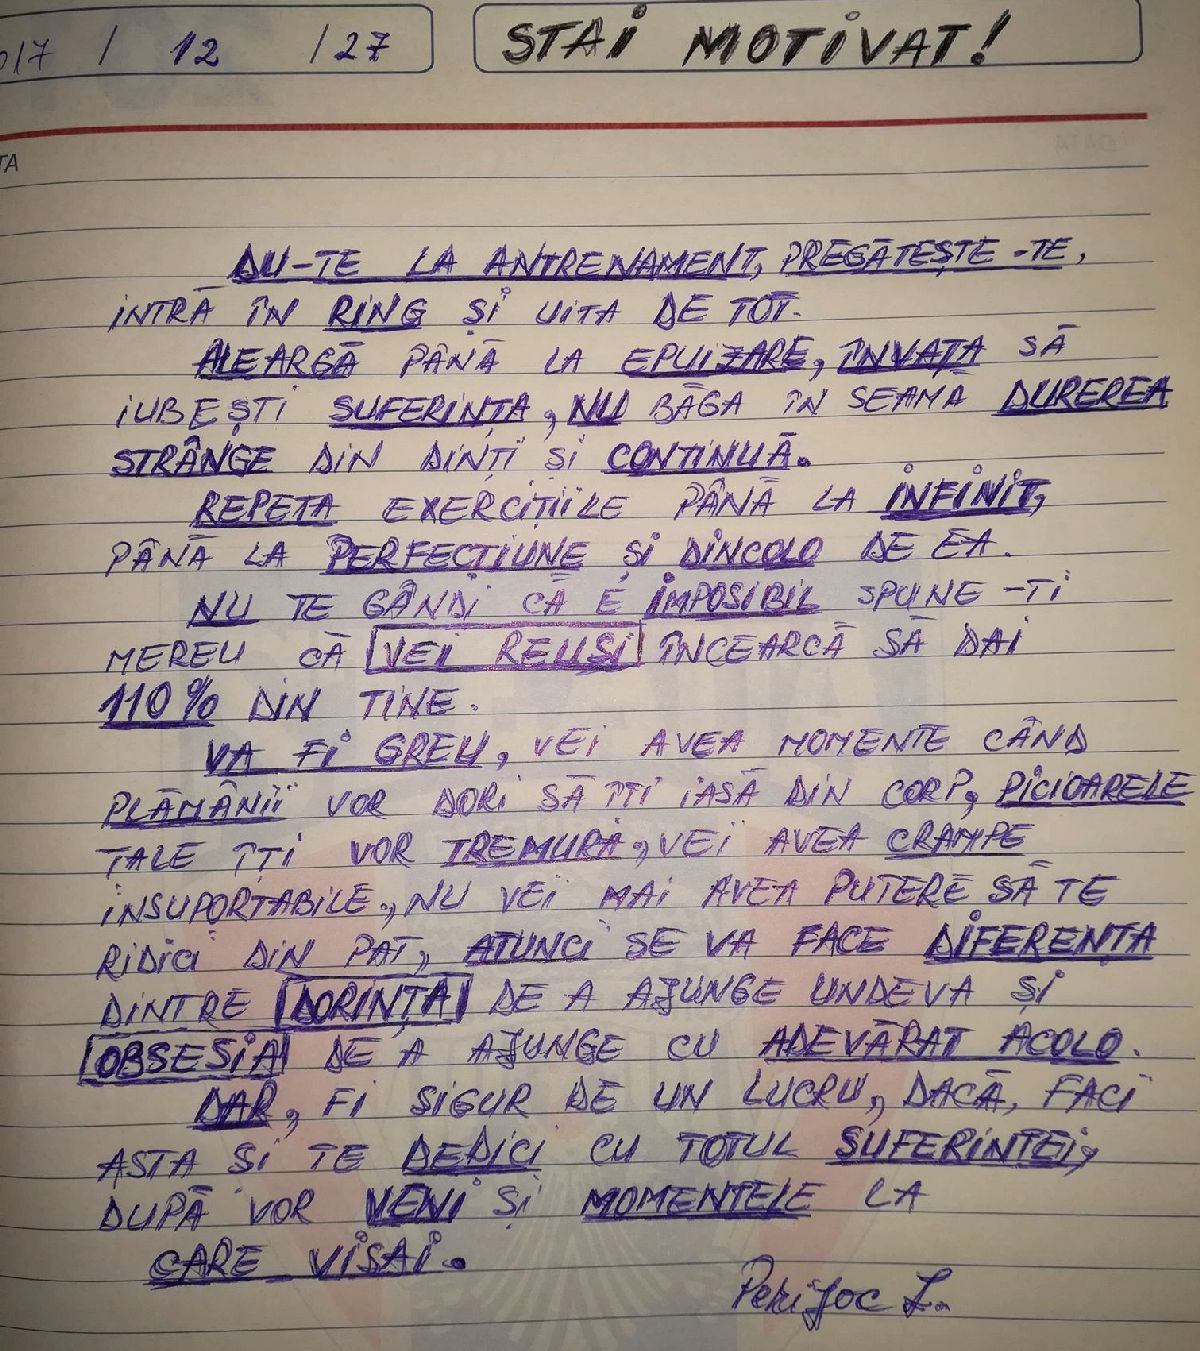 017 / 12 / 27
STAI MOTIVAT!
TA
DU-TE LA ANTRENAMENT, PREGĂTEȘTE-TE,
INTRĂ ÎN RING ȘI UITA DE TOT.
ALEARGĂ PÂNĂ LA EPUIZARE, ÎNVAȚA SĂ
IUBEȘTI SUFERINȚA, NU BĂGA ÎN SEAMĂ DUREREA
STRÂNGE DIN DINȚI ȘI CONTINUĂ.
REPETA EXERCIȚIILE PÂNĂ LA INFINIT,
PÂNĂ LA PERFECȚIUNE ȘI DINCOLO DE EA.
NU TE GÂNDI CĂ E IMPOSIBIL SPUNE-TI
MEREU CĂ VEI REUȘI ÎNCEARCĂ SĂ DAI
110% DIN TINE.
VA FI GREU, VEI AVEA MOMENTE CÂND
PLĂMÂNII VOR DORI SĂ ÎȚI IASĂ DIN CORP, PICIOARELE
TALE ÎȚI VOR TREMURA, VEI AVEA CRAMPE
INSUPORTABILE, NU VEI MAI AVEA PUTERE SĂ TE
RIDICI DIN PAT, ATUNCI SE VA FACE DIFERENȚA
DINTRE DORINȚA DE A AJUNGE UNDEVA ȘI
OBSESIA DE A AJUNGE CU ADEVĂRAT ACOLO.
DAR, FI SIGUR DE UN LUCRU, DACĂ, FACI
ASTA ȘI TE DEDICI CU TOTUL SUFERINTEI,
DUPĂ VOR VENI ȘI MOMENTELE LA
CARE VISAI.